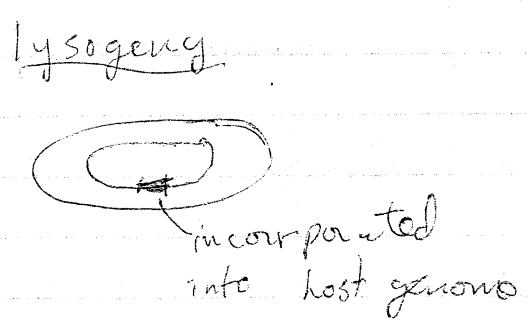 lysogeny
incorporated
into host genome